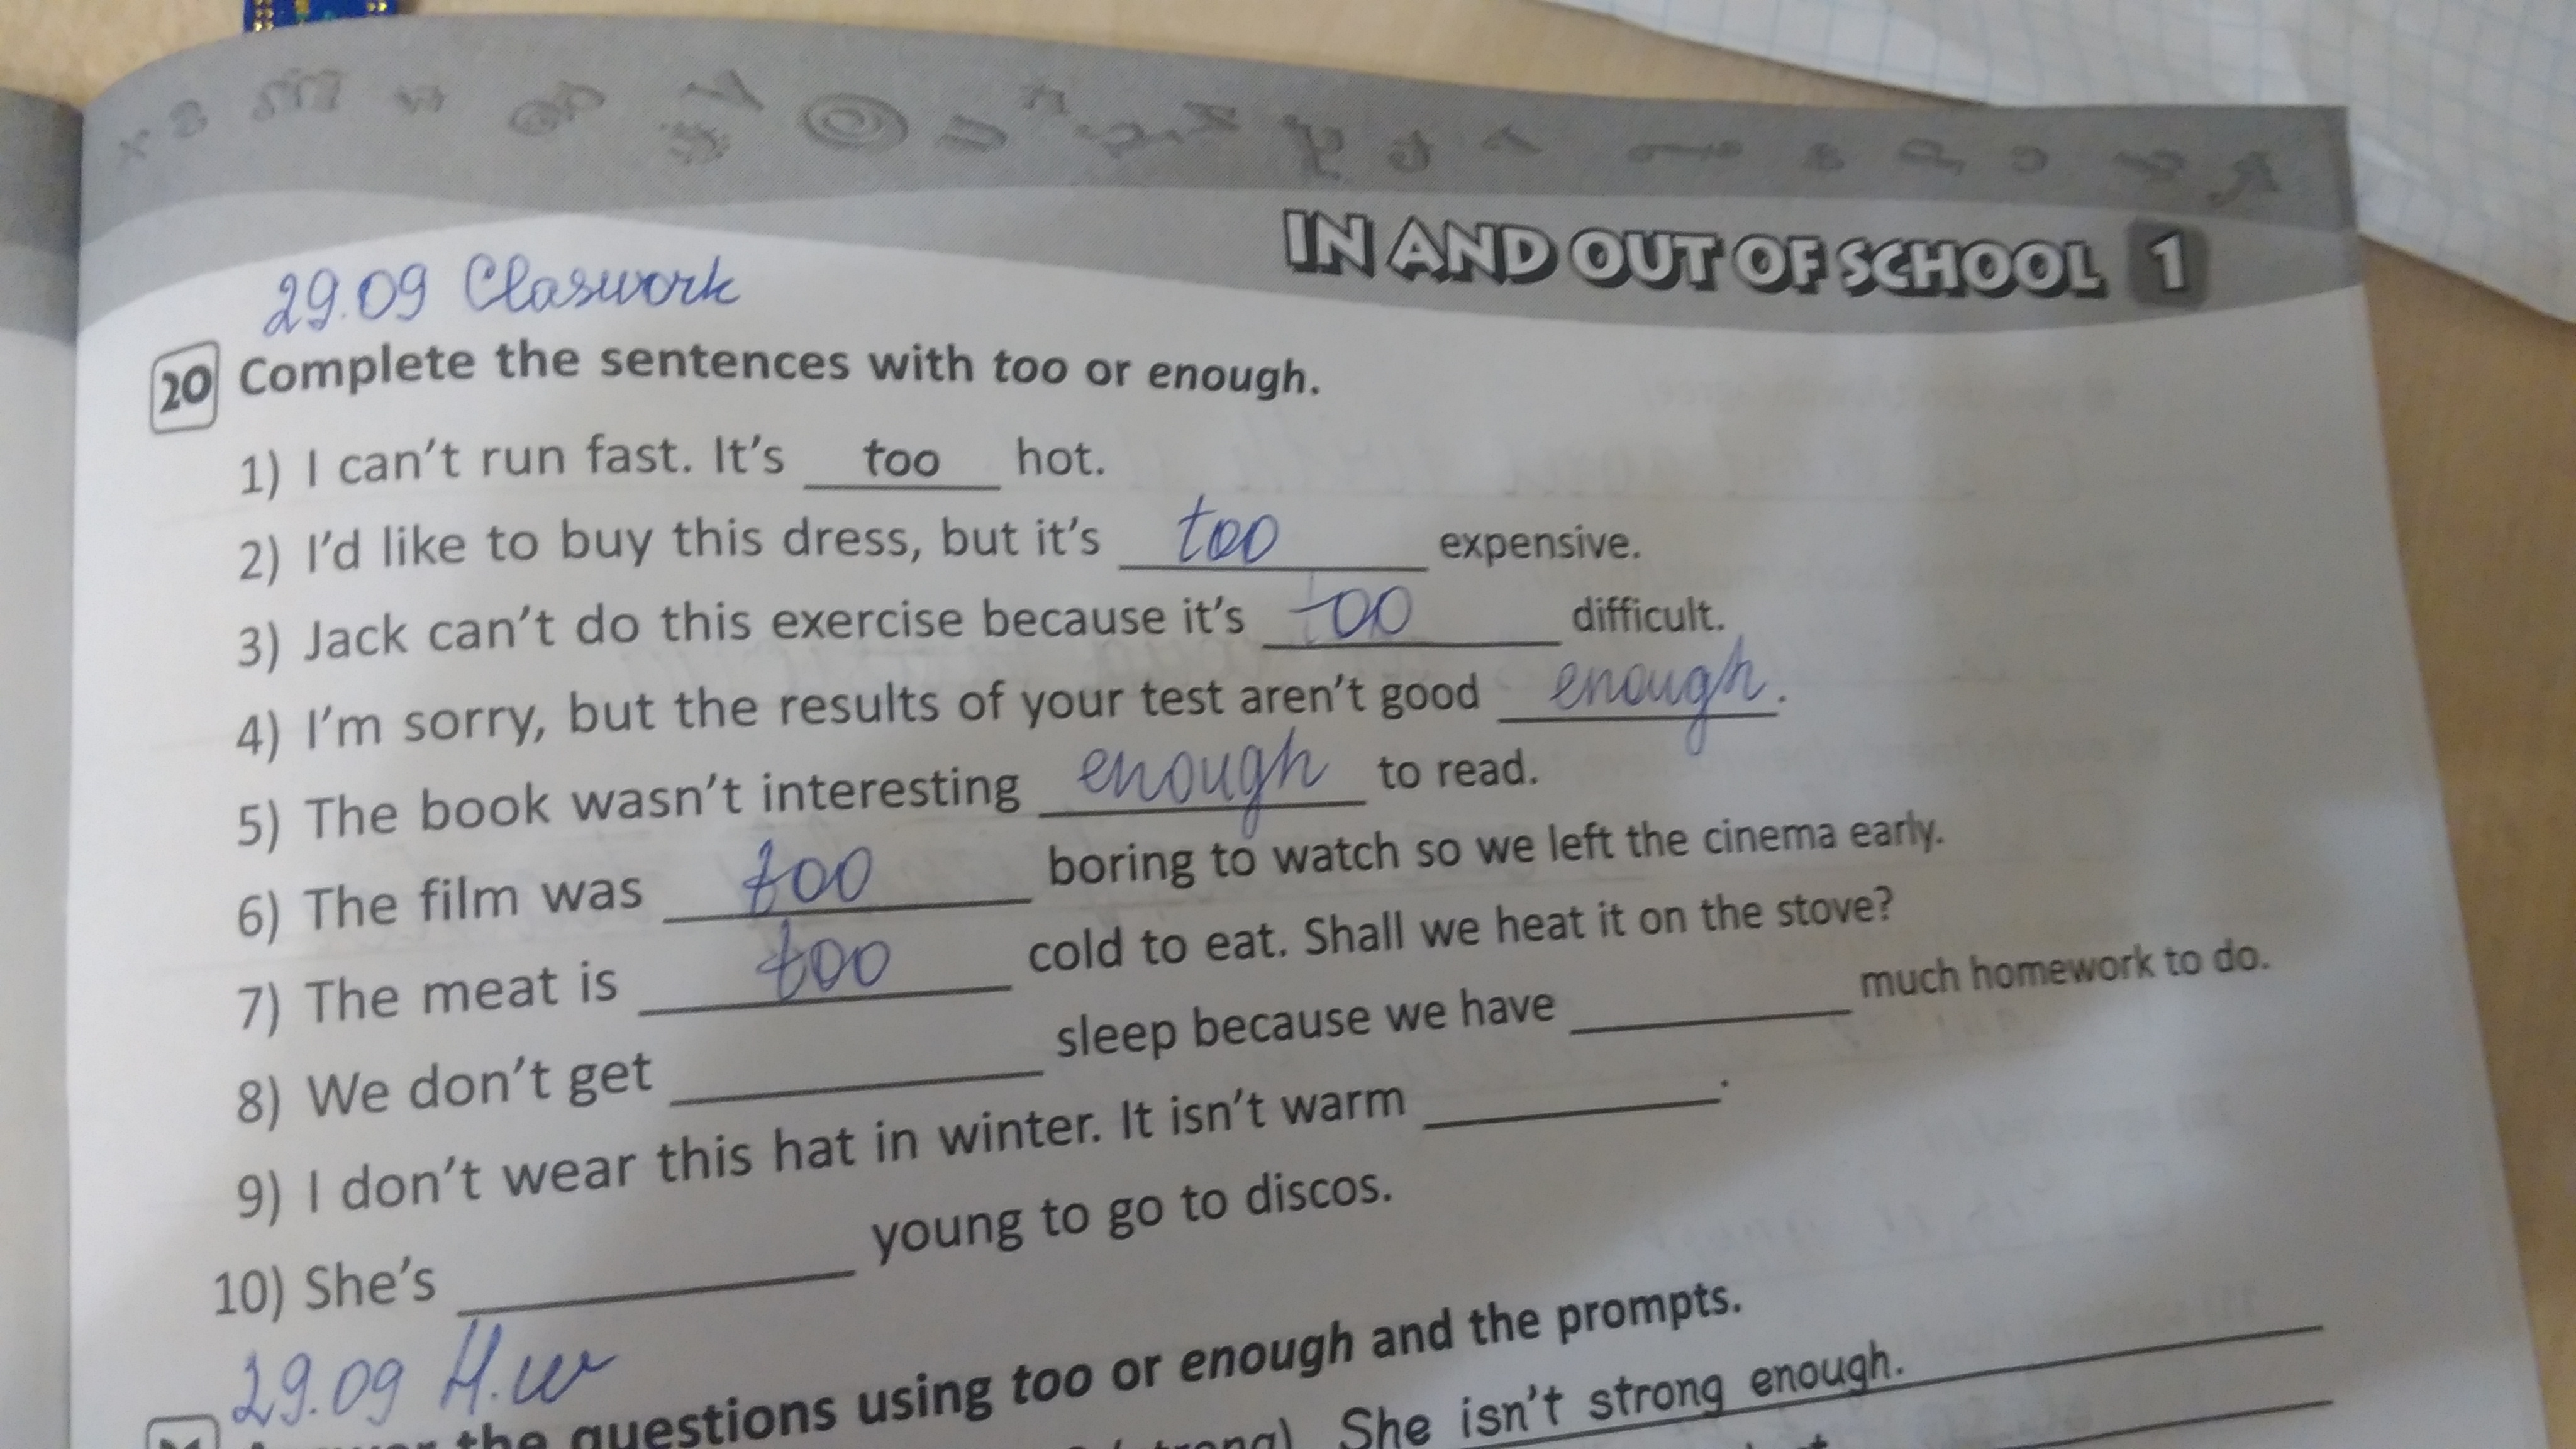 IN AND OUT OF SCHOOL 1
29.09 Claswork
20 Complete the sentences with too or enough.
1) I can't run fast. It's too hot.
2) I'd like to buy this dress, but it's too expensive.
3) Jack can't do this exercise because it's too difficult.
4) I'm sorry, but the results of your test aren't good enough.
5) The book wasn't interesting enough to read.
6) The film was too boring to watch so we left the cinema early.
7) The meat is too cold to eat. Shall we heat it on the stove?
8) We don't get ____ sleep because we have ____ much homework to do.
9) I don't wear this hat in winter. It isn't warm ____.
10) She's ____ young to go to discos.
29.09 H.w
the questions using too or enough and the prompts.
She isn't strong enough.